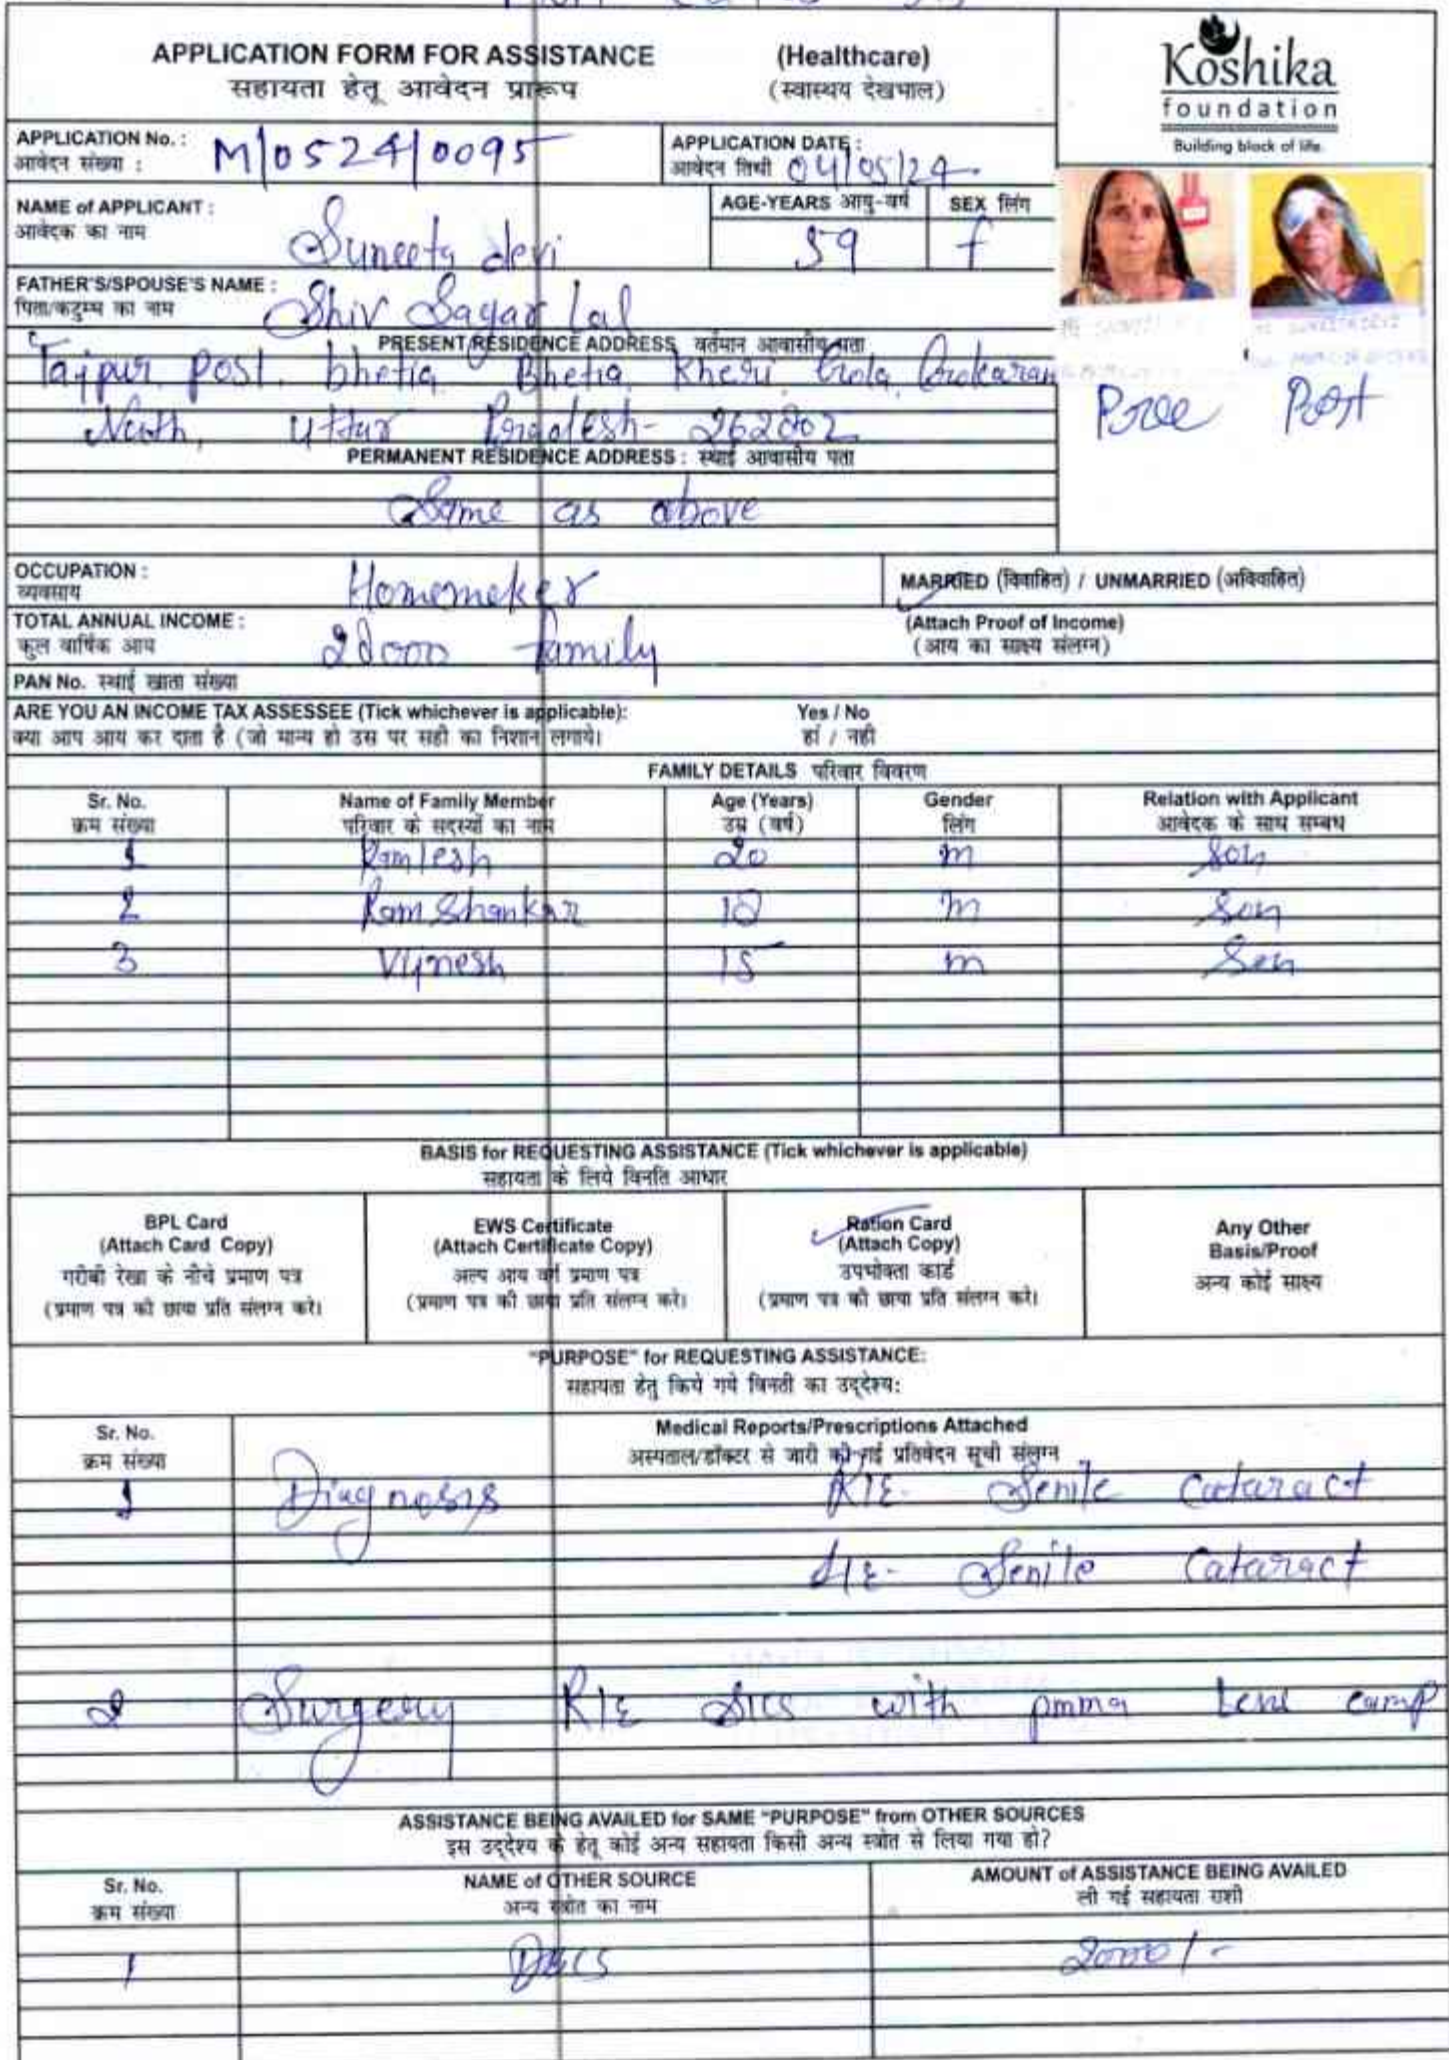 APPLICATION FORM FOR ASSISTANCE (Healthcare)
सहायता हेतू आवेदन प्रारूप (स्वास्थय देखभाल)
Koshika
foundation
Building block of life.
APPLICATION No. : M/0524/0095
आवेदन संख्या :
APPLICATION DATE : 04/05/24
आवेदन तिथी
NAME of APPLICANT : Suneeta devi
आवेदक का नाम
AGE-YEARS आयु-वर्ष 59
SEX लिंग f
FATHER'S/SPOUSE'S NAME : Shiv Sagar Lal
पिता/कटुम्ब का नाम
PRESENT RESIDENCE ADDRESS वर्तमान आवासीय पता
Tajpur post. bhetia Bhetia Kheri Gola Gokaran
Nath, Uttar Pradesh- 262802
Pree Post
PERMANENT RESIDENCE ADDRESS : स्थाई आवासीय पता
Same as above
OCCUPATION : Homemeker
व्यवसाय
MARRIED (विवाहित) / UNMARRIED (अविवाहित)
TOTAL ANNUAL INCOME : family
कुल वार्षिक आय
(Attach Proof of Income)
(आय का साक्ष्य संलग्न)
PAN No. स्थाई खाता संख्या
ARE YOU AN INCOME TAX ASSESSEE (Tick whichever is applicable): Yes / No
क्या आप आय कर दाता है (जो मान्य हो उस पर सही का निशान लगाये। हां / नही
FAMILY DETAILS परिवार विवरण
Sr. No. Name of Family Member Age (Years) Gender Relation with Applicant
क्रम संख्या परिवार के सदस्यों का नाम उम्र (वर्ष) लिंग आवेदक के साथ सम्बध
1 Ramlesh 20 m Son
2 Ram Shankar 18 m Son
3 Vijnesh 15 m Son
BASIS for REQUESTING ASSISTANCE (Tick whichever is applicable)
सहायता के लिये विनति आधार
BPL Card
(Attach Card Copy)
गरीबी रेखा के नीचे प्रमाण पत्र
(प्रमाण पत्र की छाया प्रति संलग्न करे।
EWS Certificate
(Attach Certificate Copy)
अल्प आय वर्ग प्रमाण पत्र
(प्रमाण पत्र की छाया प्रति संलग्न करे।
Ration Card
(Attach Copy)
उपभोक्ता कार्ड
(प्रमाण पत्र की छाया प्रति संलग्न करे।
Any Other
Basis/Proof
अन्य कोई साक्ष्य
"PURPOSE" for REQUESTING ASSISTANCE:
सहायता हेतु किये गये विनती का उद्देश्य:
Sr. No. Medical Reports/Prescriptions Attached
क्रम संख्या अस्पताल/डॉक्टर से जारी की गई प्रतिवेदन सूची संलग्न
1 Diagnosis R/E- Senile Cataract
L/E- Senile Cataract
2 Surgery R/E SICS with pmma Lens camp
ASSISTANCE BEING AVAILED for SAME "PURPOSE" from OTHER SOURCES
इस उद्देश्य के हेतू कोई अन्य सहायता किसी अन्य स्त्रोत से लिया गया हो?
Sr. No. NAME of OTHER SOURCE AMOUNT of ASSISTANCE BEING AVAILED
क्रम संख्या अन्य स्त्रोत का नाम ली गई सहायता राशी
1